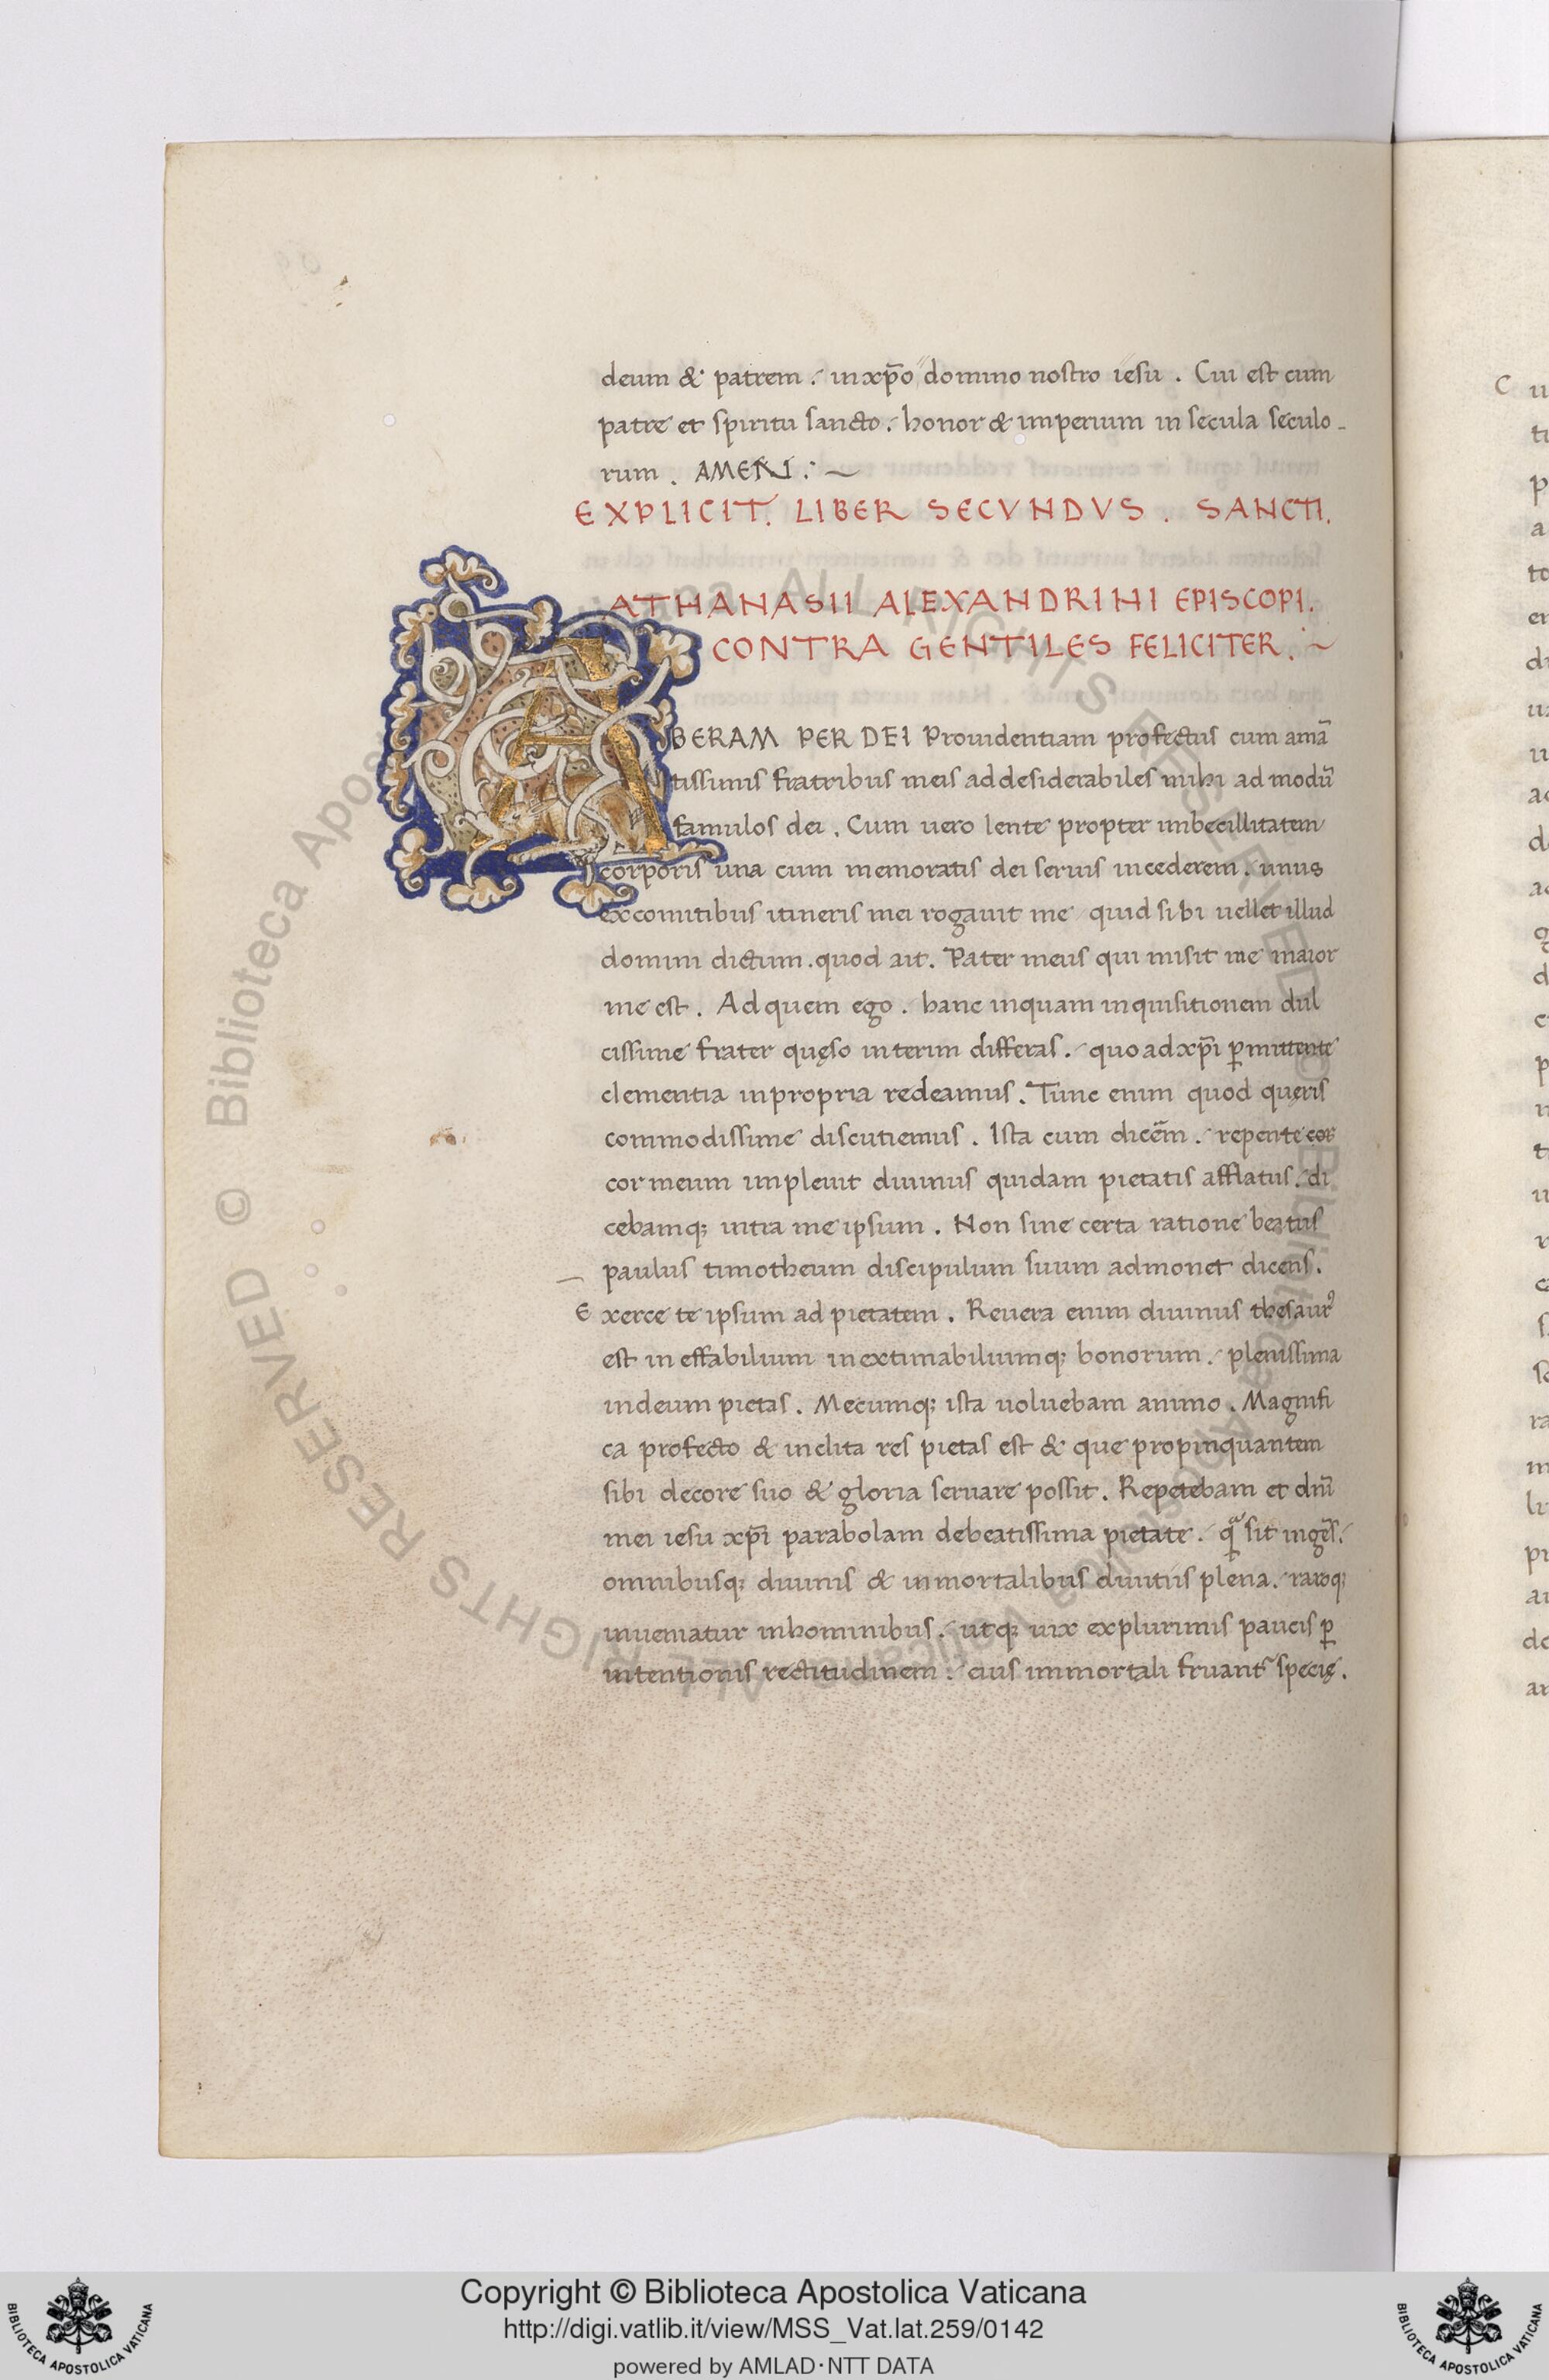 deum & patrem . in xp̄o domino nostro iesu . Cui est cum
patre et spiritu sancto . honor & imperium in secula seculo-
rum . AMEN : ~
EXPLICIT . LIBER SECVNDVS . SANCTI .
ATHANASII ALEXANDRINI EPISCOPI .
CONTRA GENTILES FELICITER . ~
ABIERAM PER DEI Prouidentiam profectus cum amā
tissimis fratribus meis ad desiderabiles mihi ad modū
famulos dei . Cum uero lente propter imbecillitatem
corporis una cum memoratis dei seruis incederem . unus
ex comitibus itineris mei rogauit me quid sibi uellet illud
domini dictum . quod ait . Pater meus qui misit me maior
me est . Ad quem ego . hanc inquam inquisitionem dul
cissime frater quęso interim differas . quoad xp̄i ꝑmittente
clementia in propria redeamus . Tunc enim quod quęris
commodissime discutiemus . Ista cum dicēm . repente cor
cor meum impleuit diuinus quidam pietatis afflatus . di
cebamq; intra me ipsum . Non sine certa ratione beatus
paulus timotheum discipulum suum admonet dicens .
Exerce te ipsum ad pietatem . Reuera enim diuinus thesaurꝰ
est in effabilium inextimabiliumq; bonorum . plenissima
in deum pietas . Mecumq; ista uoluebam animo . Magnifi
ca profecto & inclita res pietas est & que propinquantem
sibi decore suo & gloria seruare possit . Repetebam et dnī
mei iesu xp̄i parabolam de beatissima pietate . sit ingēs .
omnibusq; diuinis & inmortalibus diuitiis plena . raroq;
inueniatur in hominibus . utq; uix ex plurimis paucis ꝑ
intentionis rectitudinem . eius immortali fruant᷑ specię .
© Biblioteca Apostolica Vaticana ALL RIGHTS RESERVED
Copyright © Biblioteca Apostolica Vaticana
http://digi.vatlib.it/view/MSS_Vat.lat.259/0142
powered by AMLAD·NTT DATA
BIBLIOTECA APOSTOLICA VATICANA
BIBLIOTECA APOSTOLICA VATICANA